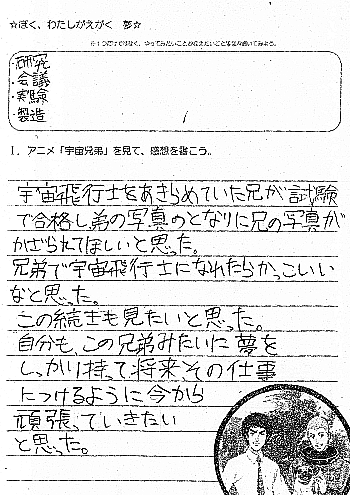 ☆ぼく、わたしがえがく 夢☆
・研究
・会議
・実験
・製造
1. アニメ「宇宙兄弟」を見て、感想を書こう。
宇宙飛行士をあきらめていた兄が試験
で合格し弟の写真のとなりに兄の写真が
かざられてほしいと思った。
兄弟で宇宙飛行士になれたらかっこいい
なと思った。
この続きも見たいと思った。
自分も、この兄弟みたいに夢を
しっかり持って将来、その仕事
につけるように今から
頑張っていきたい
と思った。